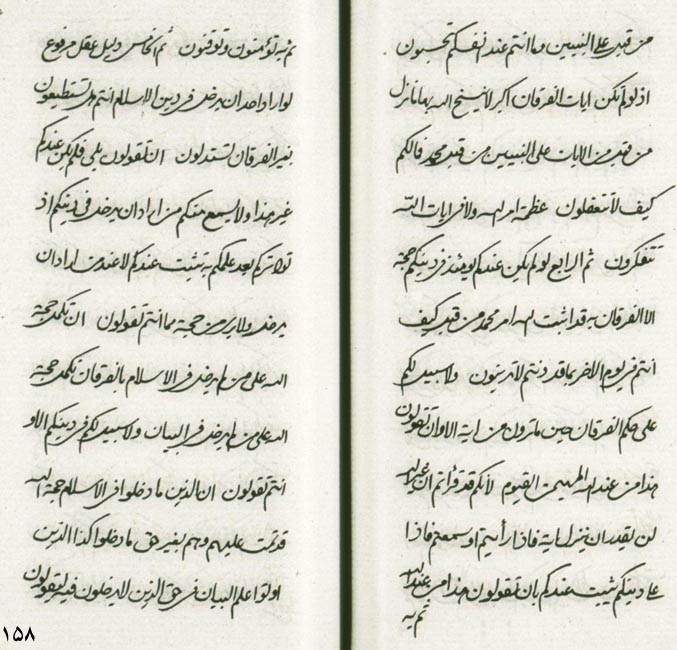 من قبل على النبيين وما انتم عند انفسكم تحسبون
اذ لو لم تكن ايات الفرقان اكبر لا ينسخ الله بها ما نزل
من قبل من الايات على النبيين من قبل محمد فما لكم
كيف لا تتعقلون عظمة امر الله ولا في ايات الله
تتفكرون ثم الرابع لو لم يكن عندكم يومئذ في دينكم حجة
الا الفرقان به قد اثبت الله امر محمد من قبل كيف
انتم في يوم الاخر بما قد دنتم لا تدينون ولا سبيل لكم
على حكم الفرقان حين ما ترون من اية الا وان تقولون
هذا من عند الله المهيمن القيوم لأنكم قد قرأتم ان غير الله
لن يقدر ان ينزل اية فاذا رأيتم او سمعتم فاذا
على دينكم يثبت عندكم بان تقولون هذا من عند الله
ثم به
ثم به تؤمنون وتوقنون ثم الخامس دليل عقل مرفوع
لو اراد احد ان يدخل في دين الاسلام انتم هل تستطيعون
بغير الفرقان لتستدلون ان تقولون بلى فلم يكن عندكم
غير هذا ولا يسمع منكم من اراد ان يدخل في دينكم اذ
تواتركم بعد علمكم به تثبت عندكم لا عند من اراد ان
يدخل ولا بد من حجة مما انتم تقولون ان تكمل حجة
الله على من لم يدخل في الاسلام بالفرقان تكمل حجة
الله على من لم يدخل في البيان ولا سبيل لكم في دينكم الا و
انتم تقولون ان الذين ما دخلوا في الاسلام حجة الله
قد تمت عليهم وهم بغير حق ما دخلوا كذا الذين
اوتوا علم البيان في حق الذين لا يدخلون فيه ليقولون
١٥٨